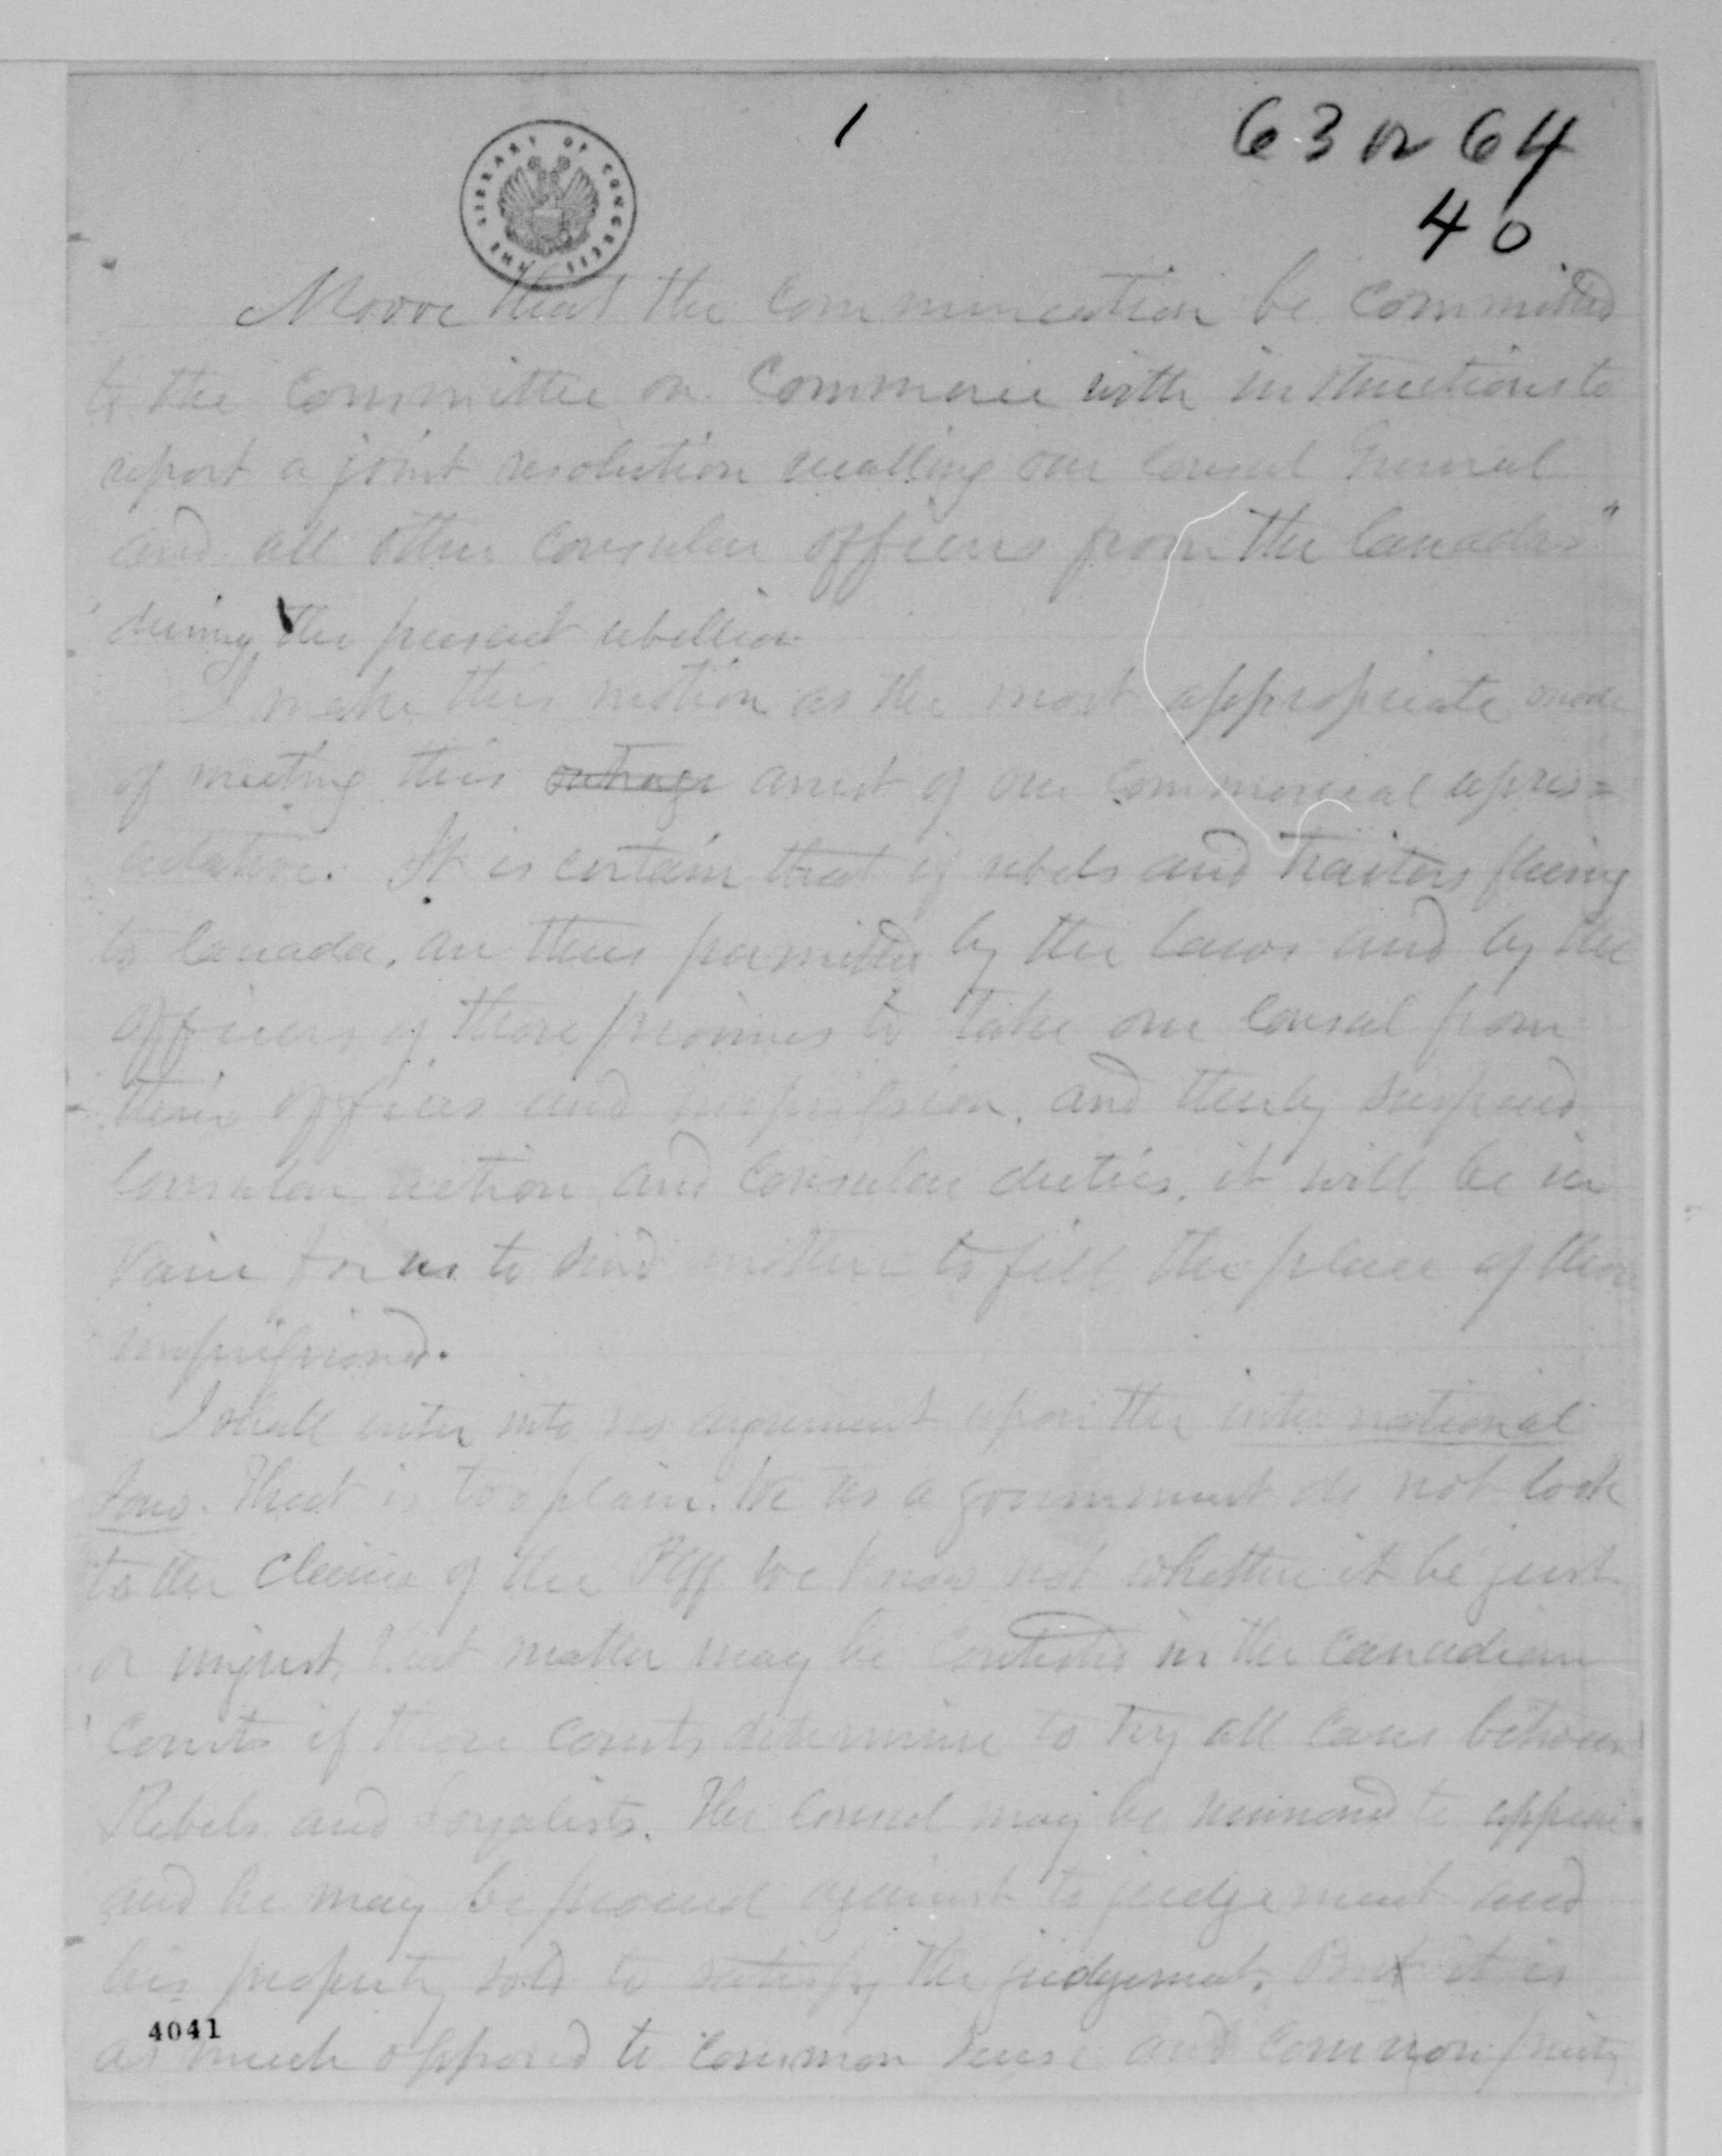 1
63 or 64
40
THE LIBRARY OF CONGRESS
Moove that the communication be committed
to the committee on Commerce with instructions to
report a joint resolution recalling our Consul General
and all other consular officers from "the Canadas"
during the present rebellion
I make this motion as the most appropriate mode
of meeting this outrage arrest of our commercial repres=
entative. It is certain that if rebels and traitors fleeing
to Canada, are thus permitted by the laws and by the
officers of those provinces to take our consul from
their offices and imprission, and thereby suspend
consular action and consular duties, it will be in
vain for us to send another to fill the place of those
imprissiond.
I shall enter into no argument upon the international
law. That is too plain. We as a government do not look
to the claim of the Plff we know not whether it be just
or unjust, that matter may be contested in the Canadian
Courts if those courts determine to try all cases between
Rebels and Loyalists. The consul may be summond to appear
and he may be proceed against to judgement and
his property sold to satisfy the judgement. But it is
4041
as much opposed to common sense and common